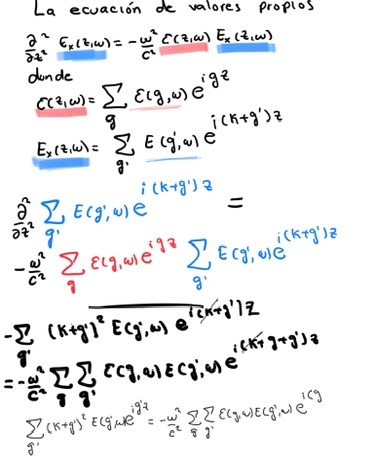 La ecuación de valores propios
∂²/∂z² Eₓ(z,ω) = -ω²/c² ε(z,ω) Eₓ(z,ω)
donde
ε(z,ω) = Σ_g ε(g,ω) e^{igz}
Eₓ(z,ω) = Σ_{g'} E(g',ω) e^{i(k+g')z}
∂²/∂z² Σ_{g'} E(g',ω) e^{i(k+g')z} =
-ω²/c² Σ_g ε(g,ω) e^{igz} Σ_{g'} E(g',ω) e^{i(k+g')z}
-Σ_{g'} (k+g')² E(g',ω) e^{i(k+g')z}
= -ω²/c² Σ_g Σ_{g'} ε(g,ω) E(g',ω) e^{i(k+g+g')z}
Σ_{g'} (k+g')² E(g',ω) e^{ig'z} = -ω²/c² Σ_g Σ_{g'} ε(g,ω) E(g',ω) e^{i(g